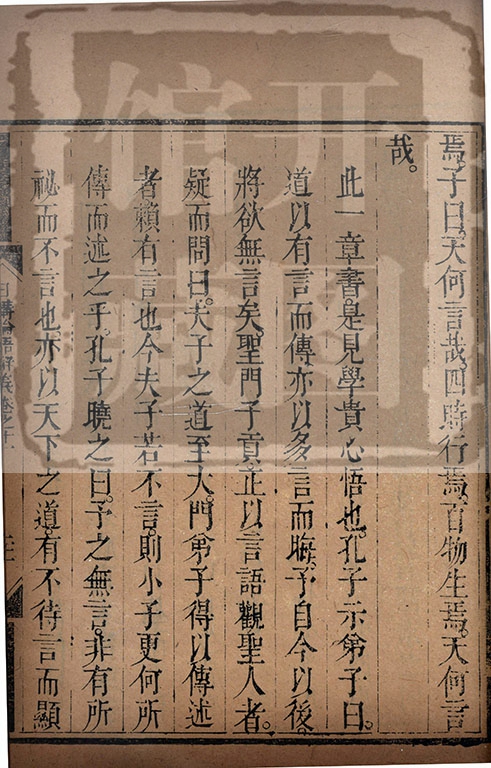 焉。子曰。天何言哉。四時行焉。百物生焉。天何言
哉。
此一章書。是見學貴心悟也。孔子示弟子曰。
道以有言而傳。亦以多言而晦。予自今以後。
將欲無言矣。聖門子貢。正以言語觀聖人者。
疑而問曰。夫子之道至大。門弟子得以傳述
者。賴有言也。今夫子若不言。則小子更何所
傳而述之乎。孔子曉之曰。予之無言。非有所
祕而不言也。亦以天下之道。有不待言而顯
日講論語解義卷之十